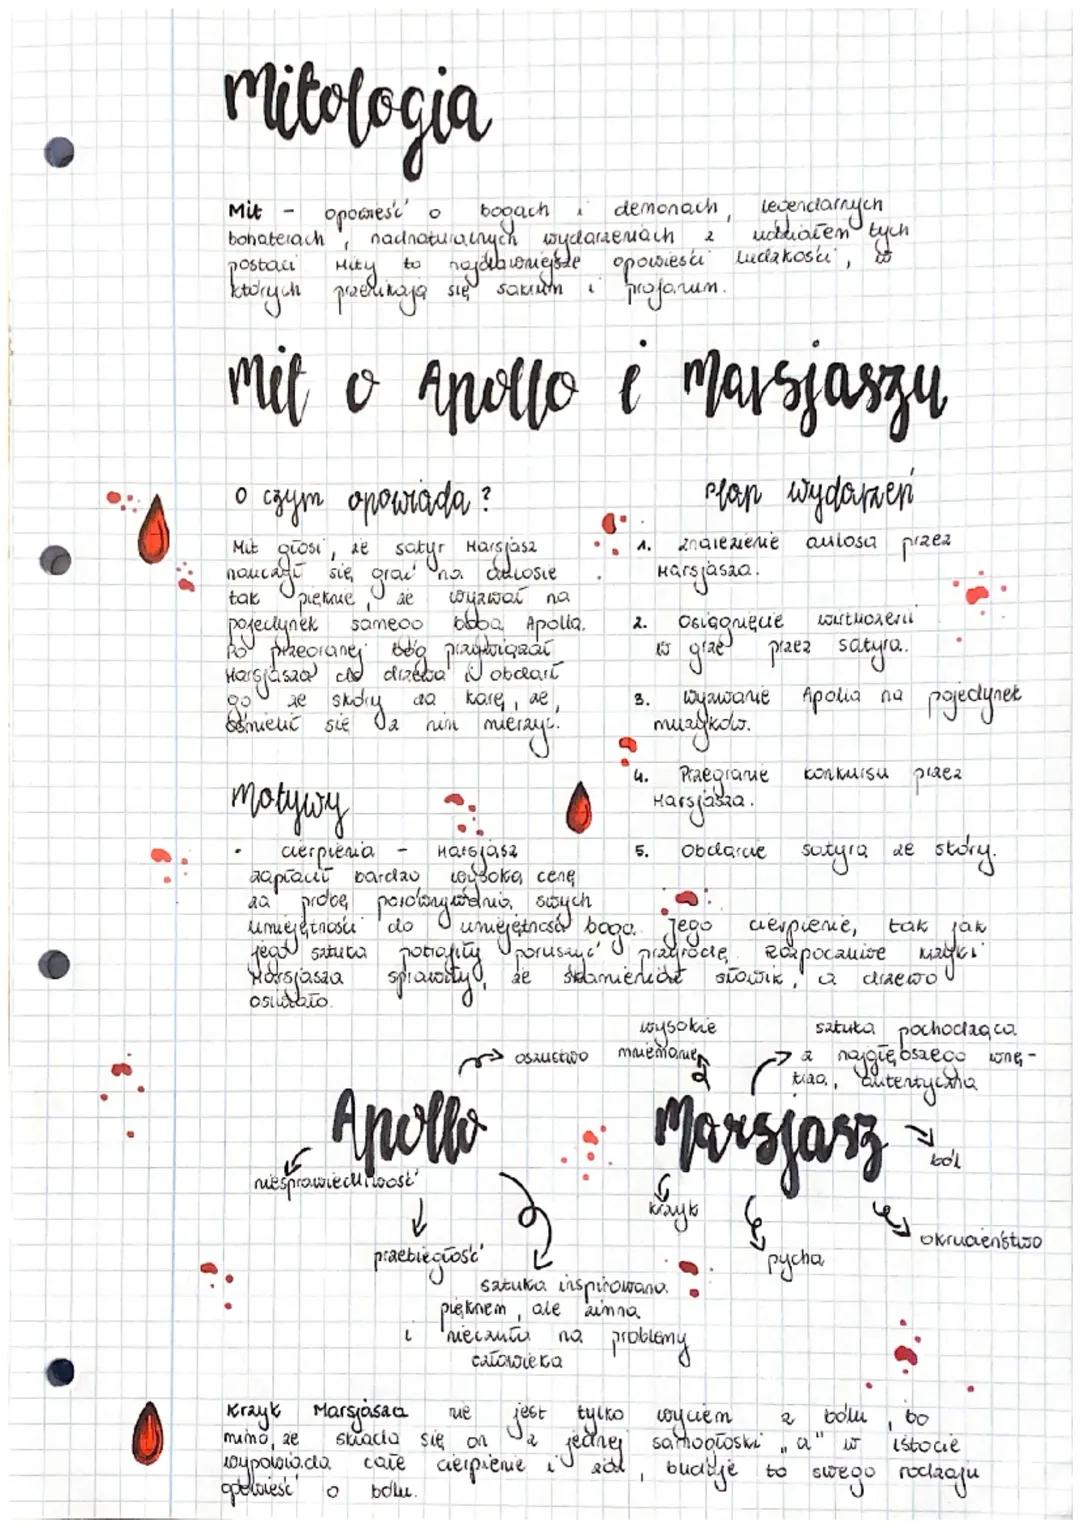 Mitologia
Mit - opowieść o bogach i demonach, legendarnych
bohaterach, nadnaturalnych wydarzeniach z udziałem tych
postaci Mity to najdawniejsze opowieści ludzkości, w
których przenikają się sakrum i profanum.
Mit o Apollo i Marsjaszu
O czym opowiada?
Mit głosi, że satyr Marsjasz
nauczył się grać na aulosie
tak pięknie, że wyzwał na
pojedynek samego boga Apolla.
Po przegranej bóg przywiązał
Marsjasza do drzewa i obdarł
go ze skóry za karę, że
ośmielił się z nim mierzyć.
Plan wydarzeń
1. Znalezienie aulosa przez
Marsjasza.
2. Osiągnięcie wirtuozerii
w grze przez satyra.
3. Wyzwanie Apolla na pojedynek
muzyków.
4. Przegranie konkursu przez
Marsjasza.
5. Obdarcie satyra ze skóry.
Motywy
• cierpienia - Marsjasz
zapłacił bardzo wysoką cenę
za próbę porównywania swych
umiejętności do umiejętności boga. Jego cierpienie, tak jak
jego sztuka potrafiły poruszyć przyrodę. Rozpaczliwe krzyki
Marsjasza sprawiły, że skamieniał słowik, a drzewo
osiwiało.
Apollo
oszustwo
niesprawiedliwość
przebiegłość
sztuka inspirowana
pięknem, ale zimna
i nieczuła na problemy
człowieka
Marsjasz
wysokie
mniemanie
sztuka pochodząca
z najgłębszego wnę-
trza, autentyczna
ból
krzyk
pycha
okrucieństwo
Krzyk Marsjasza nie jest tylko wyciem z bólu, bo
mimo, że składa się on z jednej samogłoski "a" w istocie
wypowiada całe cierpienie i żal, buduje to swego rodzaju
opowieść o bólu.